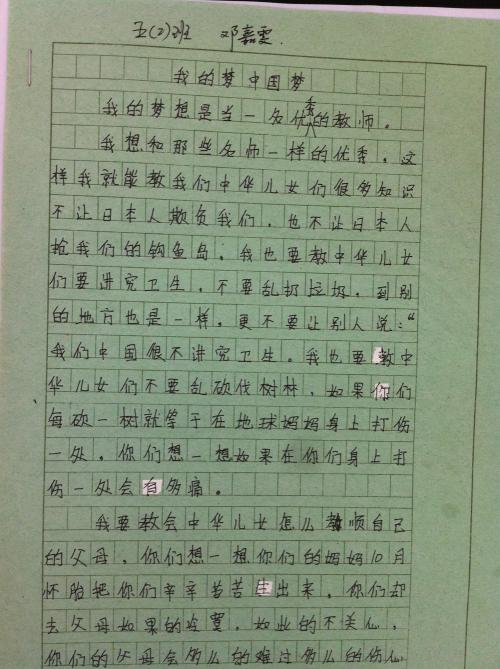 五(2)班 邓嘉雯.
我的梦中国梦
我的梦想是当一名优秀的教师。
我想和那些名师一样的优秀。这
样我就能教我们中华儿女们很多知识
不让日本人欺负我们，也不让日本人
抢我们的钓鱼岛。我也要教中华儿女
们要讲究卫生，不要乱扔垃圾，到别
的地方也是一样，更不要让别人说：“
我们中国很不讲究卫生。我也要教中
华儿女们不要乱砍伐树林，如果你们
每砍一树就等于在地球妈妈身上打伤
一处。你们想一想如果在你们身上打
伤一处会有多痛。
我要教会中华儿女怎么孝顺自己
的父母，你们想一想你们的妈妈10月
怀胎把你们辛辛苦苦生出来，你们却
去父母如果的，如此的不关心，
你们的父母会多么的难过多么的伤心